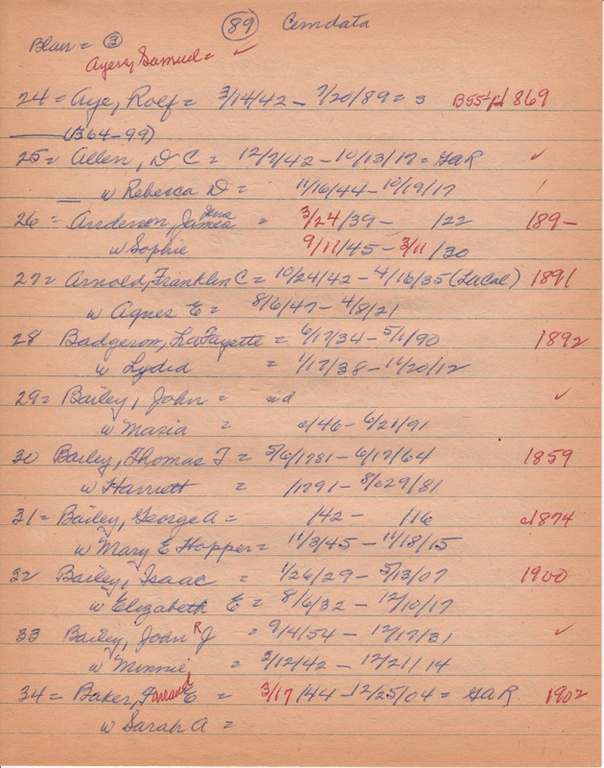 89 Cemdata
Blair = 3
Ayers, Samuel = ✓
24 = Aye, Rolf = 3/14/42 - 7/20/89 = s 1869
(B64-99)
25 = Allen, D C = 12/7/42 - 10/13/17 = GAR ✓
w Rebecca D = 11/16/44 - 10/19/17
26 = Anderson, James = 3/24/39 - /22 189-
w Sophie 9/11/45 - 3/11/30
27 = Arnold, Franklin C = 10/24/42 - 4/16/35 (La Cal) 1891
w Agnes E = 8/6/47 - 4/8/21
28 Badgerow, LaFayette = 6/17/34 - 5/1/90 1892
w Lydia = 1/17/38 - 11/20/12
29 = Bailey, John = nd ✓
w Maria = c/46 - 6/21/91
30 Bailey, Thomas T = 5/6/1781 - 6/17/64 1859
w Harriett = /1791 - 8/c29/81
31 = Bailey, George A = /42 - /16 c1874
w Mary E Hopper = 11/3/45 - 11/18/15
32 Bailey, Isaac = 1/26/29 - 5/13/07 1900
w Elizabeth E = 8/6/32 - 12/10/17
33 Bailey, John R J = 9/4/54 - 12/17/31 ✓
w Minnie = 3/12/42 - 12/21/14
34 = Baker, E = 3/17/44 - 12/25/04 = GAR 1902
w Sarah A =